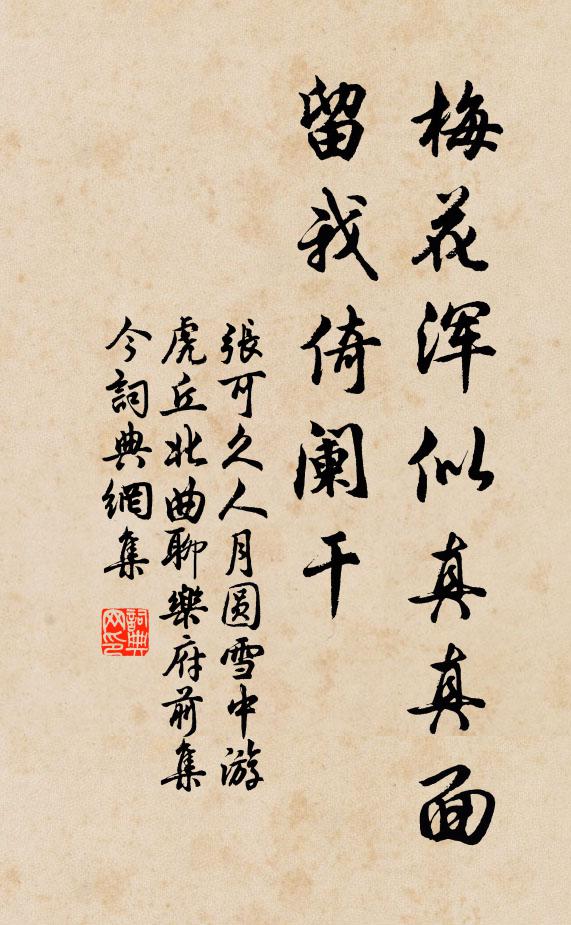 梅花浑似真真面
留我倚阑干
張可久人月圆雪中游
虎丘北曲聊樂府前集
今詞典網集
詞典网印